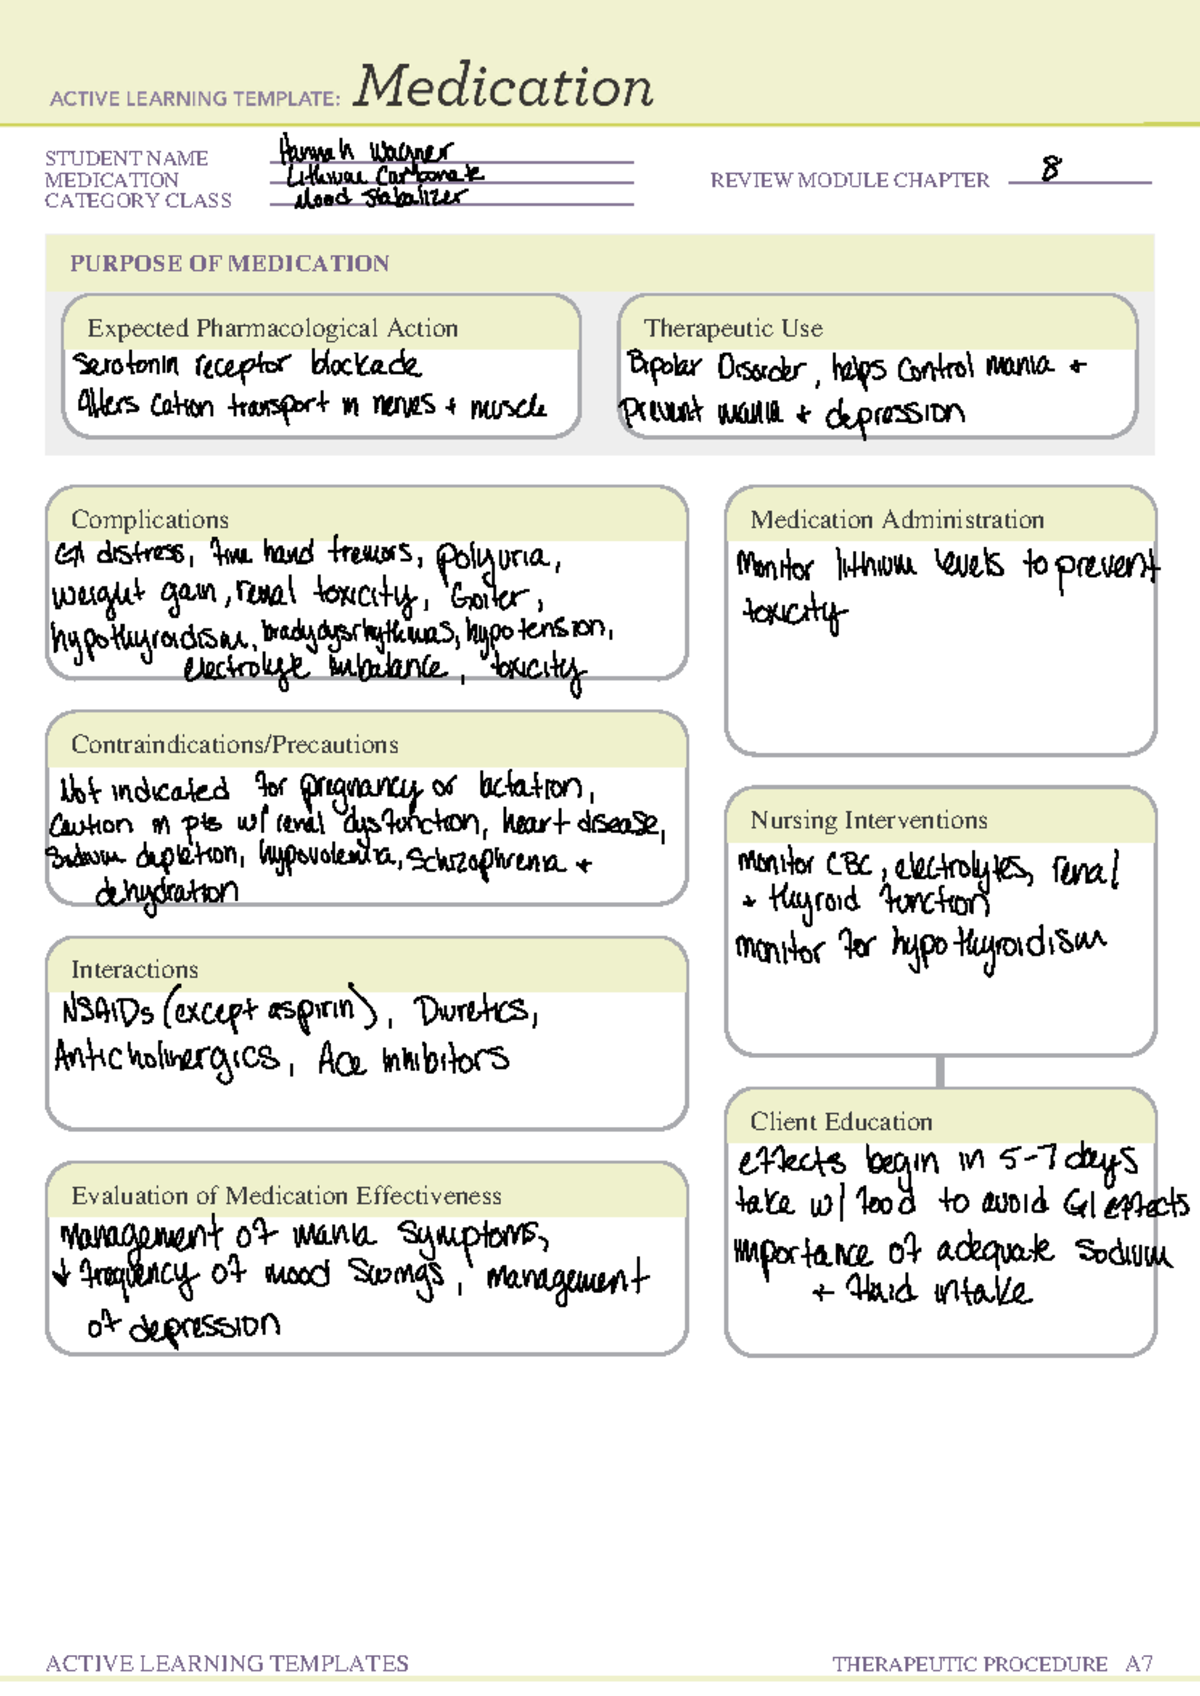 ACTIVE LEARNING TEMPLATE: Medication
STUDENT NAME Hannah Wagner
MEDICATION Lithium Carbonate
CATEGORY CLASS Mood Stabalizer
REVIEW MODULE CHAPTER 8
PURPOSE OF MEDICATION
Expected Pharmacological Action
Serotonin receptor blockade
Alters cation transport in nerves + muscle
Therapeutic Use
Bipolar Disorder, helps control mania +
prevent mania + depression
Complications
GI distress, fine hand tremors, polyuria,
weight gain, renal toxicity, Goiter,
hypothyroidism, bradydysrhythmias, hypotension,
electrolyte imbalance, toxicity
Medication Administration
Monitor lithium levels to prevent
toxicity
Contraindications/Precautions
Not indicated for pregnancy or lactation,
Caution in pts w/ renal dysfunction, heart disease,
Sodium depletion, hypovolemia, Schizophrenia +
dehydration
Nursing Interventions
monitor CBC, electrolytes, renal
+ thyroid function
monitor for hypothyroidism
Interactions
NSAIDs (except aspirin), Diuretics,
Anticholinergics, Ace inhibitors
Client Education
effects begin in 5-7 days
take w/ food to avoid GI effects
importance of adequate sodium
+ fluid intake
Evaluation of Medication Effectiveness
Management of mania symptoms,
↓ frequency of mood swings, management
of depression
ACTIVE LEARNING TEMPLATES
THERAPEUTIC PROCEDURE A7